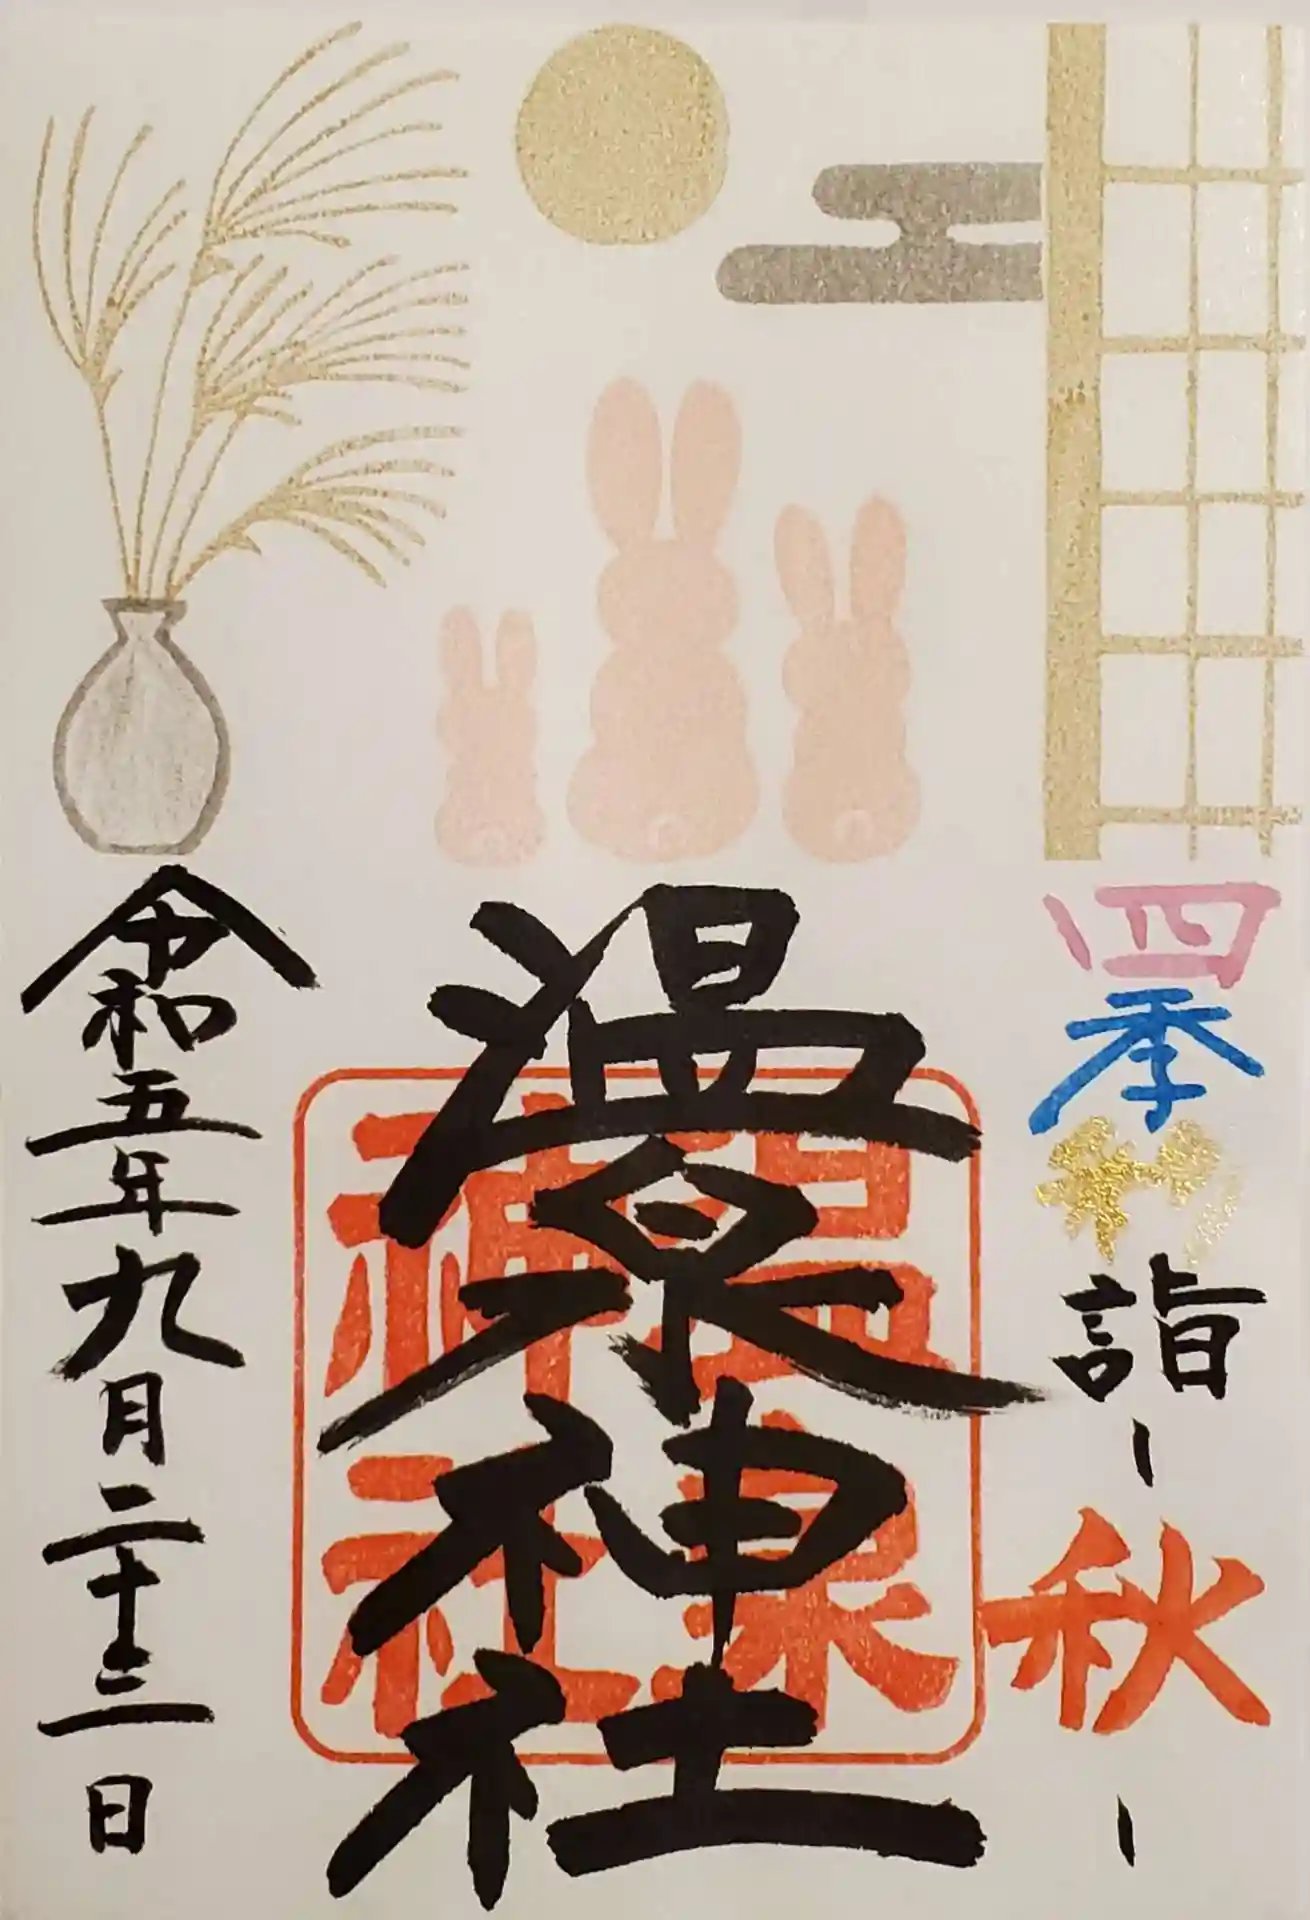 四季彩詣-秋-
温泉神社
温泉
神社
令和五年九月二十三日